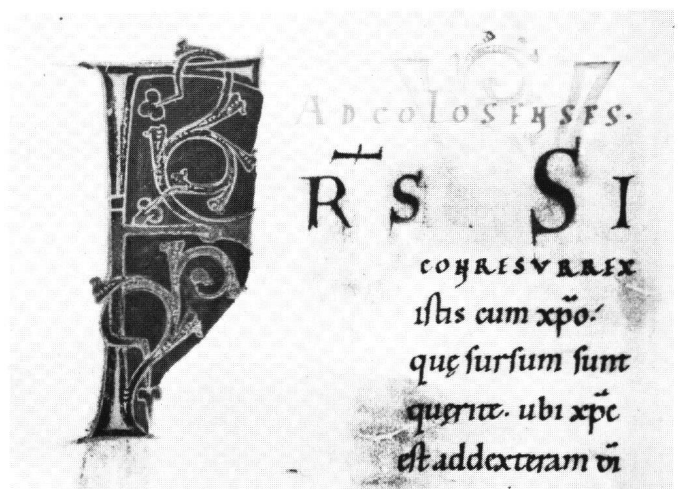 AD COLOSEHSES.
F RS SI
CONRESURREX
istis cum xpo.
quę sursum sunt
quęrite. ubi xpc
est addexteram di